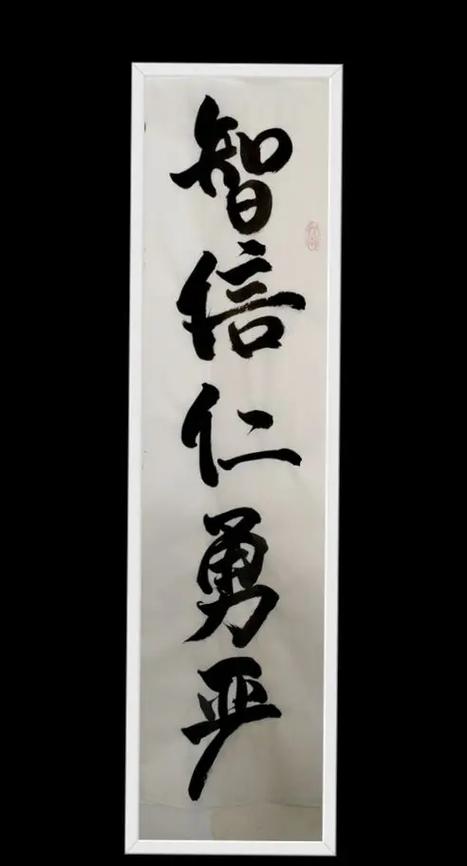 智信仁勇严